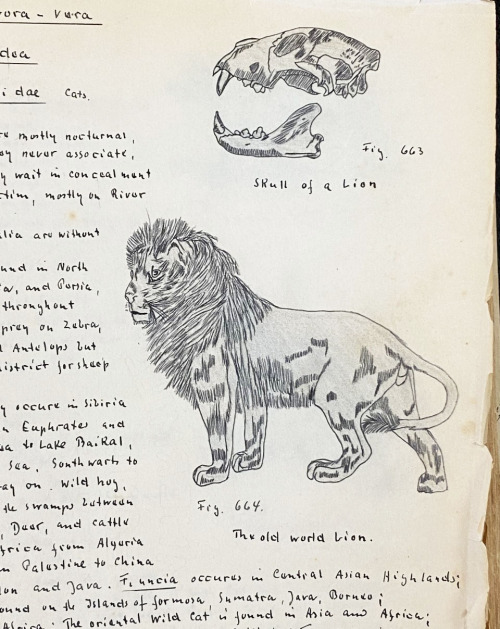 vora - Vera
dea
idae Cats.
re mostly nocturnal,
ey never associate,
y wait in concealment
ctim, mostly on River
alia are without
und in North
ia, and Persia,
throughout
prey on Zebra,
d Antelops but
district for sheep
y occure in Sibiria
n Euphrates and
ea to Lake Baikal,
Sea, Southwarts to
ey on. Wild hog,
the swamps between
, Deer, and cattle
Africa from Algeria
m Palestine to China
lon and Java. F. uncia occures in Central Asian Highlands;
ound on the Islands of formosa, Sumatra, Java, Borneo;
Africa: The oriental Wild Cat is found in Asia and Africa;
Fig. 663
Skull of a Lion
Fig. 664.
The old world Lion.